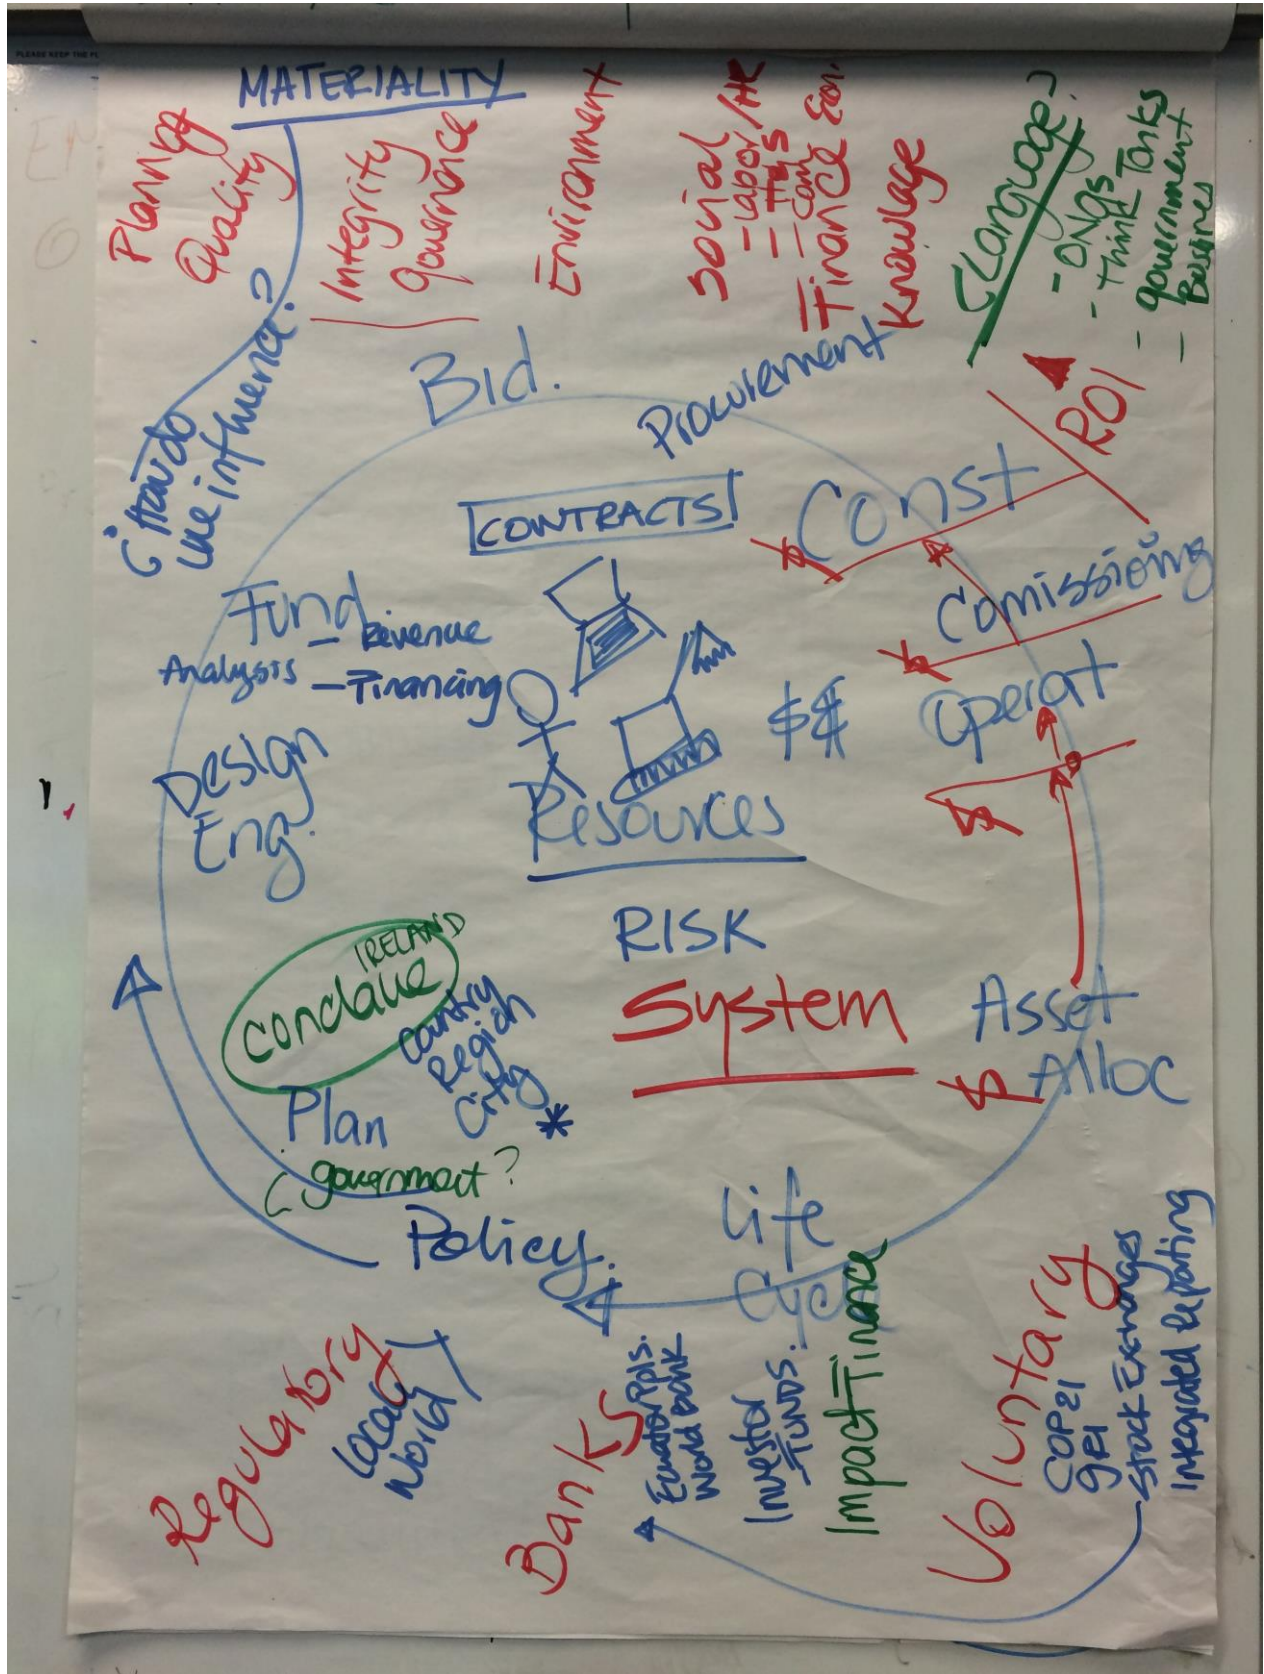 PLEASE KEEP THE
MATERIALITY
Planing
Quality
Integrity
governance
Environment
Social
- Labor/HR
- H&S
- Com
Finance Econ.
Knowlage
¿Language?
- ONGs
- Think Tanks
- government
- Busines
¿How do
we influence?
Bid.
Procurement
ROI
CONTRACTS
$ Const
Comissioing
$
Fund.
- Revenue
Analysis - Financing
$ $
Operat
$
Design
Eng.
Resources
RISK
System
IRELAND
Conclave
Country
Region
City *
Asset
$ Alloc
Plan
¿government?
Policy.
Life
Cycle
Regulatory
Local
World
Banks
Equator Ppls.
World Bank
Investor
- FUNDS.
Impact Finance
Voluntary
COP21
GRI
Stock Exchanges
Integrated Reporting